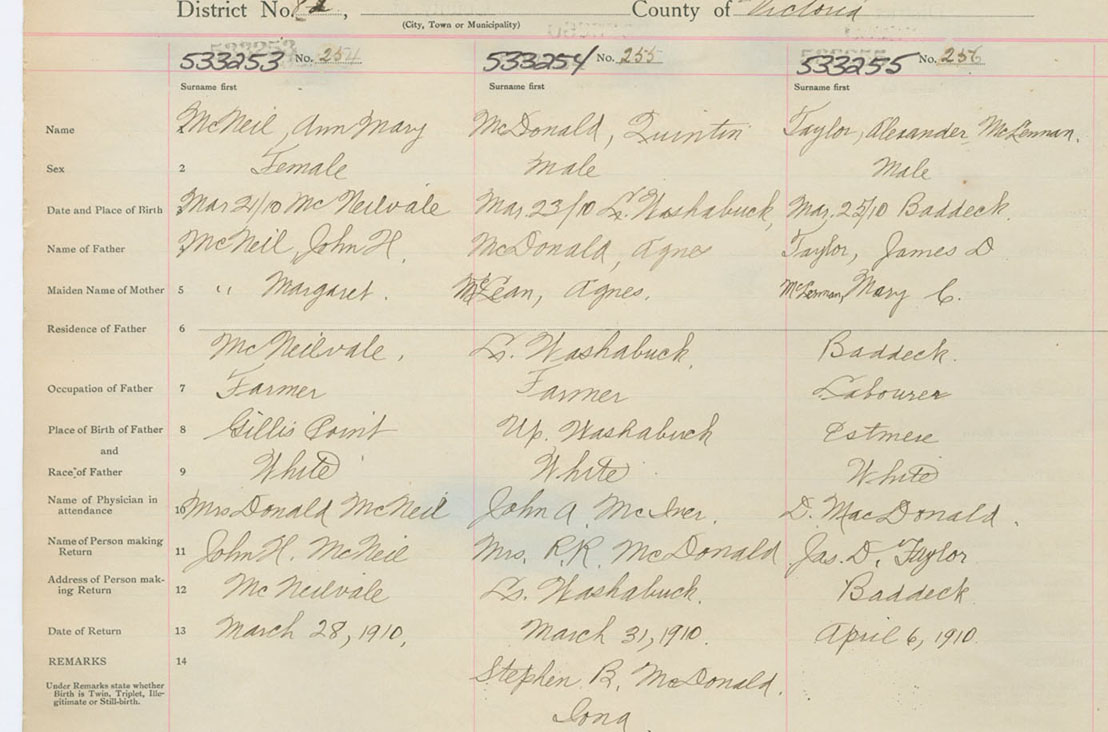 District No. 82, County of Victoria
(City, Town or Municipality)
533253 No. 254 533254 No. 255 533255 No. 256
Surname first Surname first Surname first
Name McNeil, Ann Mary McDonald, Quintin Taylor, Alexander McLennan.
Sex 2 Female Male Male
Date and Place of Birth Mar 21/10 McNeilvale Mar. 23/10 L. Washabuck, Mar. 25/10 Baddeck.
Name of Father McNeil, John H. McDonald, Agnes Taylor, James D
Maiden Name of Mother 5 " Margaret. McLean, Agnes. McLennan, Mary C.
Residence of Father 6
McNeilvale, L. Washabuck, Baddeck.
Occupation of Father 7 Farmer Farmer Labourer
Place of Birth of Father 8 Gillis Point Up. Washabuck Estmere
and
Race of Father 9 White White White
Name of Physician in
attendance 10 Mrs Donald McNeil John A. McIver. D. MacDonald.
Name of Person making
Return 11 John H. McNeil Mrs. R.R. McDonald Jas. D. Taylor
Address of Person mak-
ing Return 12 McNeilvale L. Washabuck. Baddeck
Date of Return 13 March 28, 1910. March 31, 1910. April 6, 1910.
REMARKS 14 Stephen B. McDonald.
Under Remarks state whether
Birth is Twin, Triplet, Ille-
gitimate or Still-birth.
Iona